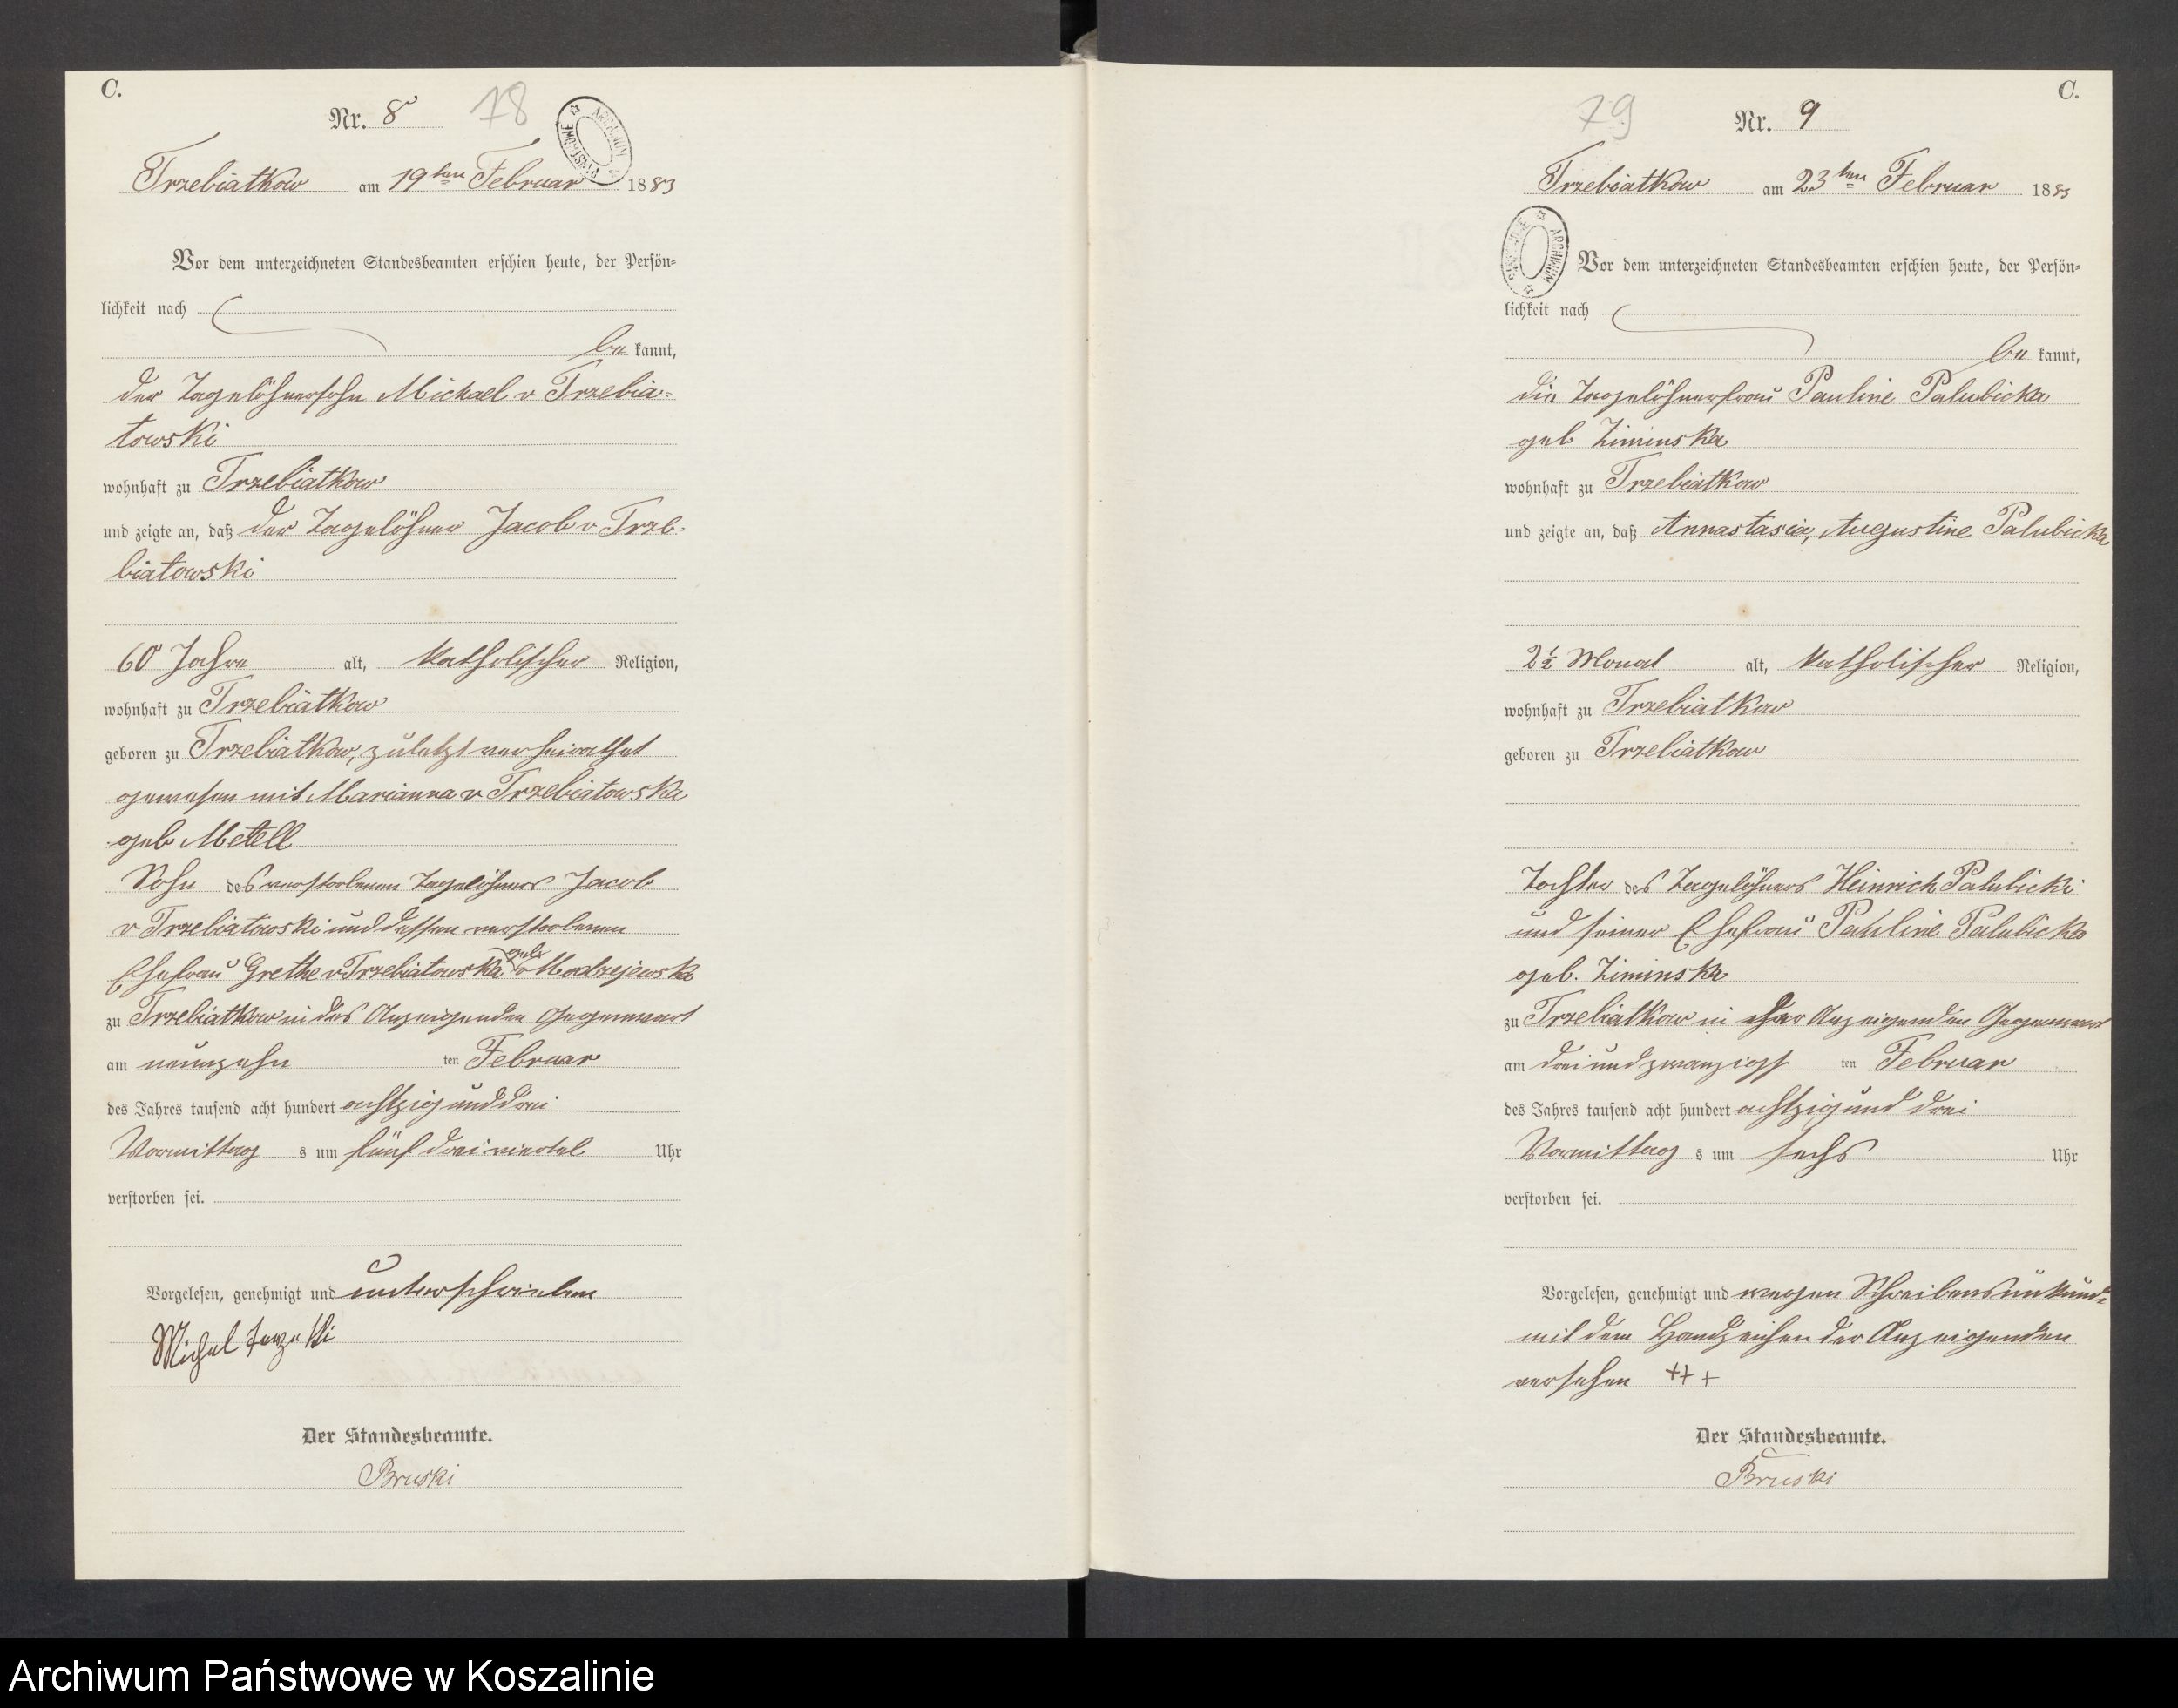 C.
Nr. 8
78
ARCHIWUM PAŃSTWOWE
Trzebiatkow am 19ten Februar 1883
Vor dem unterzeichneten Standesbeamten erschien heute, der Persön-
lichkeit nach
be kannt,
der Tagelöhnersohn Michael v Trzebia-
towski
wohnhaft zu Trzebiatkow
und zeigte an, daß der Tagelöhner Jacob v Trze-
biatowski
60 Jahre alt, katholischer Religion,
wohnhaft zu Trzebiatkow
geboren zu Trzebiatkow, zuletzt verheirathet
gewesen mit Marianna v Trzebiatowska
geb Metell
Sohn des verstorbenen Tagelöhners Jacob
v Trzebiatowski und dessen verstorbenen
Ehefrau Grethe v Trzebiatowska geb v Modrzejewska
zu Trzebiatkow in des Anzeigenden Gegenwart
am neunzehn ten Februar
des Jahres tausend acht hundert achtzig und drei
Vormittag s um fünf dreiviertel Uhr
verstorben sei.
Vorgelesen, genehmigt und unterschrieben
Michel
Der Standesbeamte.
Bruski
C.
79
Nr. 9
Trzebiatkow am 23ten Februar 1883
ARCHIWUM PAŃSTWOWE
Vor dem unterzeichneten Standesbeamten erschien heute, der Persön-
lichkeit nach
be kannt,
die Tagelöhnerfrau Pauline Palubicka
geb Ziminska
wohnhaft zu Trzebiatkow
und zeigte an, daß Annastasia, Augustine Palubicka
2½ Monat alt, katholischer Religion,
wohnhaft zu Trzebiatkow
geboren zu Trzebiatkow
Tochter des Tagelöhners Heinrich Palubicki
und seiner Ehefrau Pauline Palubicka
geb. Ziminska
zu Trzebiatkow in der Anzeigenden Gegenwart
am dreiundzwanzigs ten Februar
des Jahres tausend acht hundert achtzig und drei
Vormittag s um sechs Uhr
verstorben sei.
Vorgelesen, genehmigt und wegen Schreibensunkunde
mit dem Handzeichen der Anzeigenden
versehen +++
Der Standesbeamte.
Bruski
Archiwum Państwowe w Koszalinie